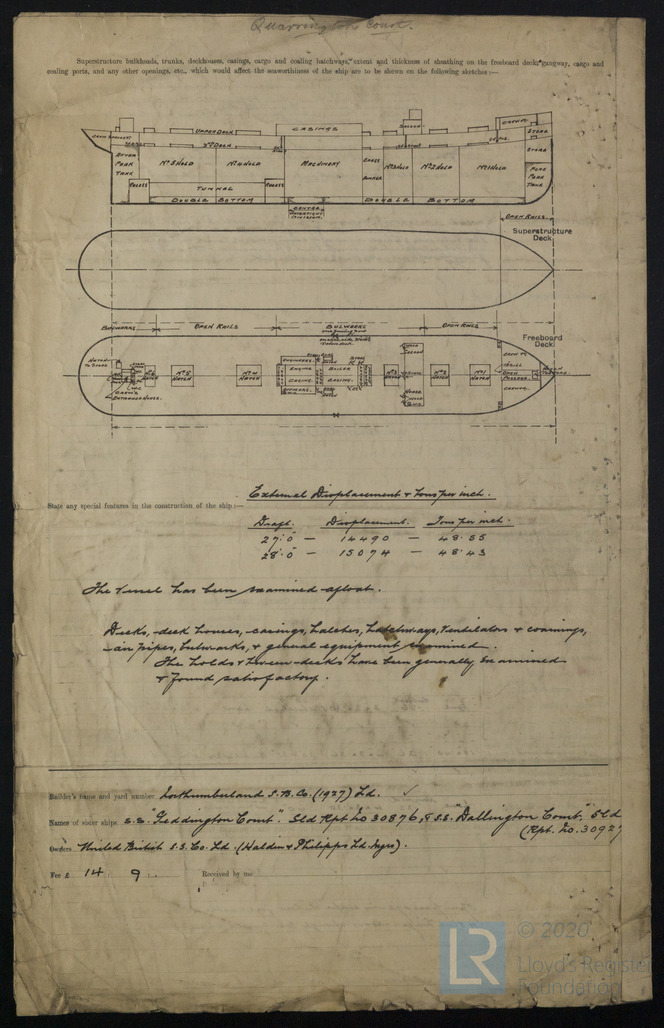 Quarrington Court.
Superstructure bulkheads, trunks, deckhouses, casings, cargo and coaling hatchways, extent and thickness of sheathing on the freeboard deck, gangway, cargo and
coaling ports, and any other openings, etc., which would affect the seaworthiness of the ship are to be shown on the following sketches :—
UPPER DECK
CASINGS
STORE
2ND DECK
STORE
AFTER PEAK TANK
No 5 HOLD
No 4 HOLD
MACHINERY
CROSS BUNKER
No 3 HOLD
No 2 HOLD
No 1 HOLD
FORE PEAK TANK
RECESS
TUNNEL
RECESS
DOUBLE BOTTOM
DOUBLE BOTTOM
CENTRE
OPEN RAILS
Superstructure
Deck
BULWARKS
OPEN RAILS
BULWARKS
OPEN RAILS
Freeboard
Deck
No 5 HATCH
No 4 HATCH
ENGINEERS
ENGINE CASING
BOILER CASING
No 3 HATCH
No 2 HATCH
No 1 HATCH
CREW'S ENTRANCE HOUSE
External Displacement & Tons per inch.
State any special features in the construction of the ship :—
Draft. Displacement. Tons per inch.
27'.0" — 14490 — 48.55
28'.0" — 15074 — 48.43
The vessel has been examined afloat.
Decks, deck houses, casings, hatches, hatchways, ventilators & coamings,
air pipes, bulwarks, & general equipment examined.
The holds & tween decks have been generally examined
& found satisfactory.
Builder's name and yard number Northumberland S.B. Co. (1927) Ld. ✓
Names of sister ships S.S. "Geddington Court" Sld Rpt No 30876, & S.S. "Dallington Court," Sld
(Rpt. No. 30927
Owners United British S.S. Co. Ld. (Haldin & Philipps Ld. Mgrs).
Fee £ 14 : 9 : . Received by me
LR
© 2020
Lloyd's Register
Foundation